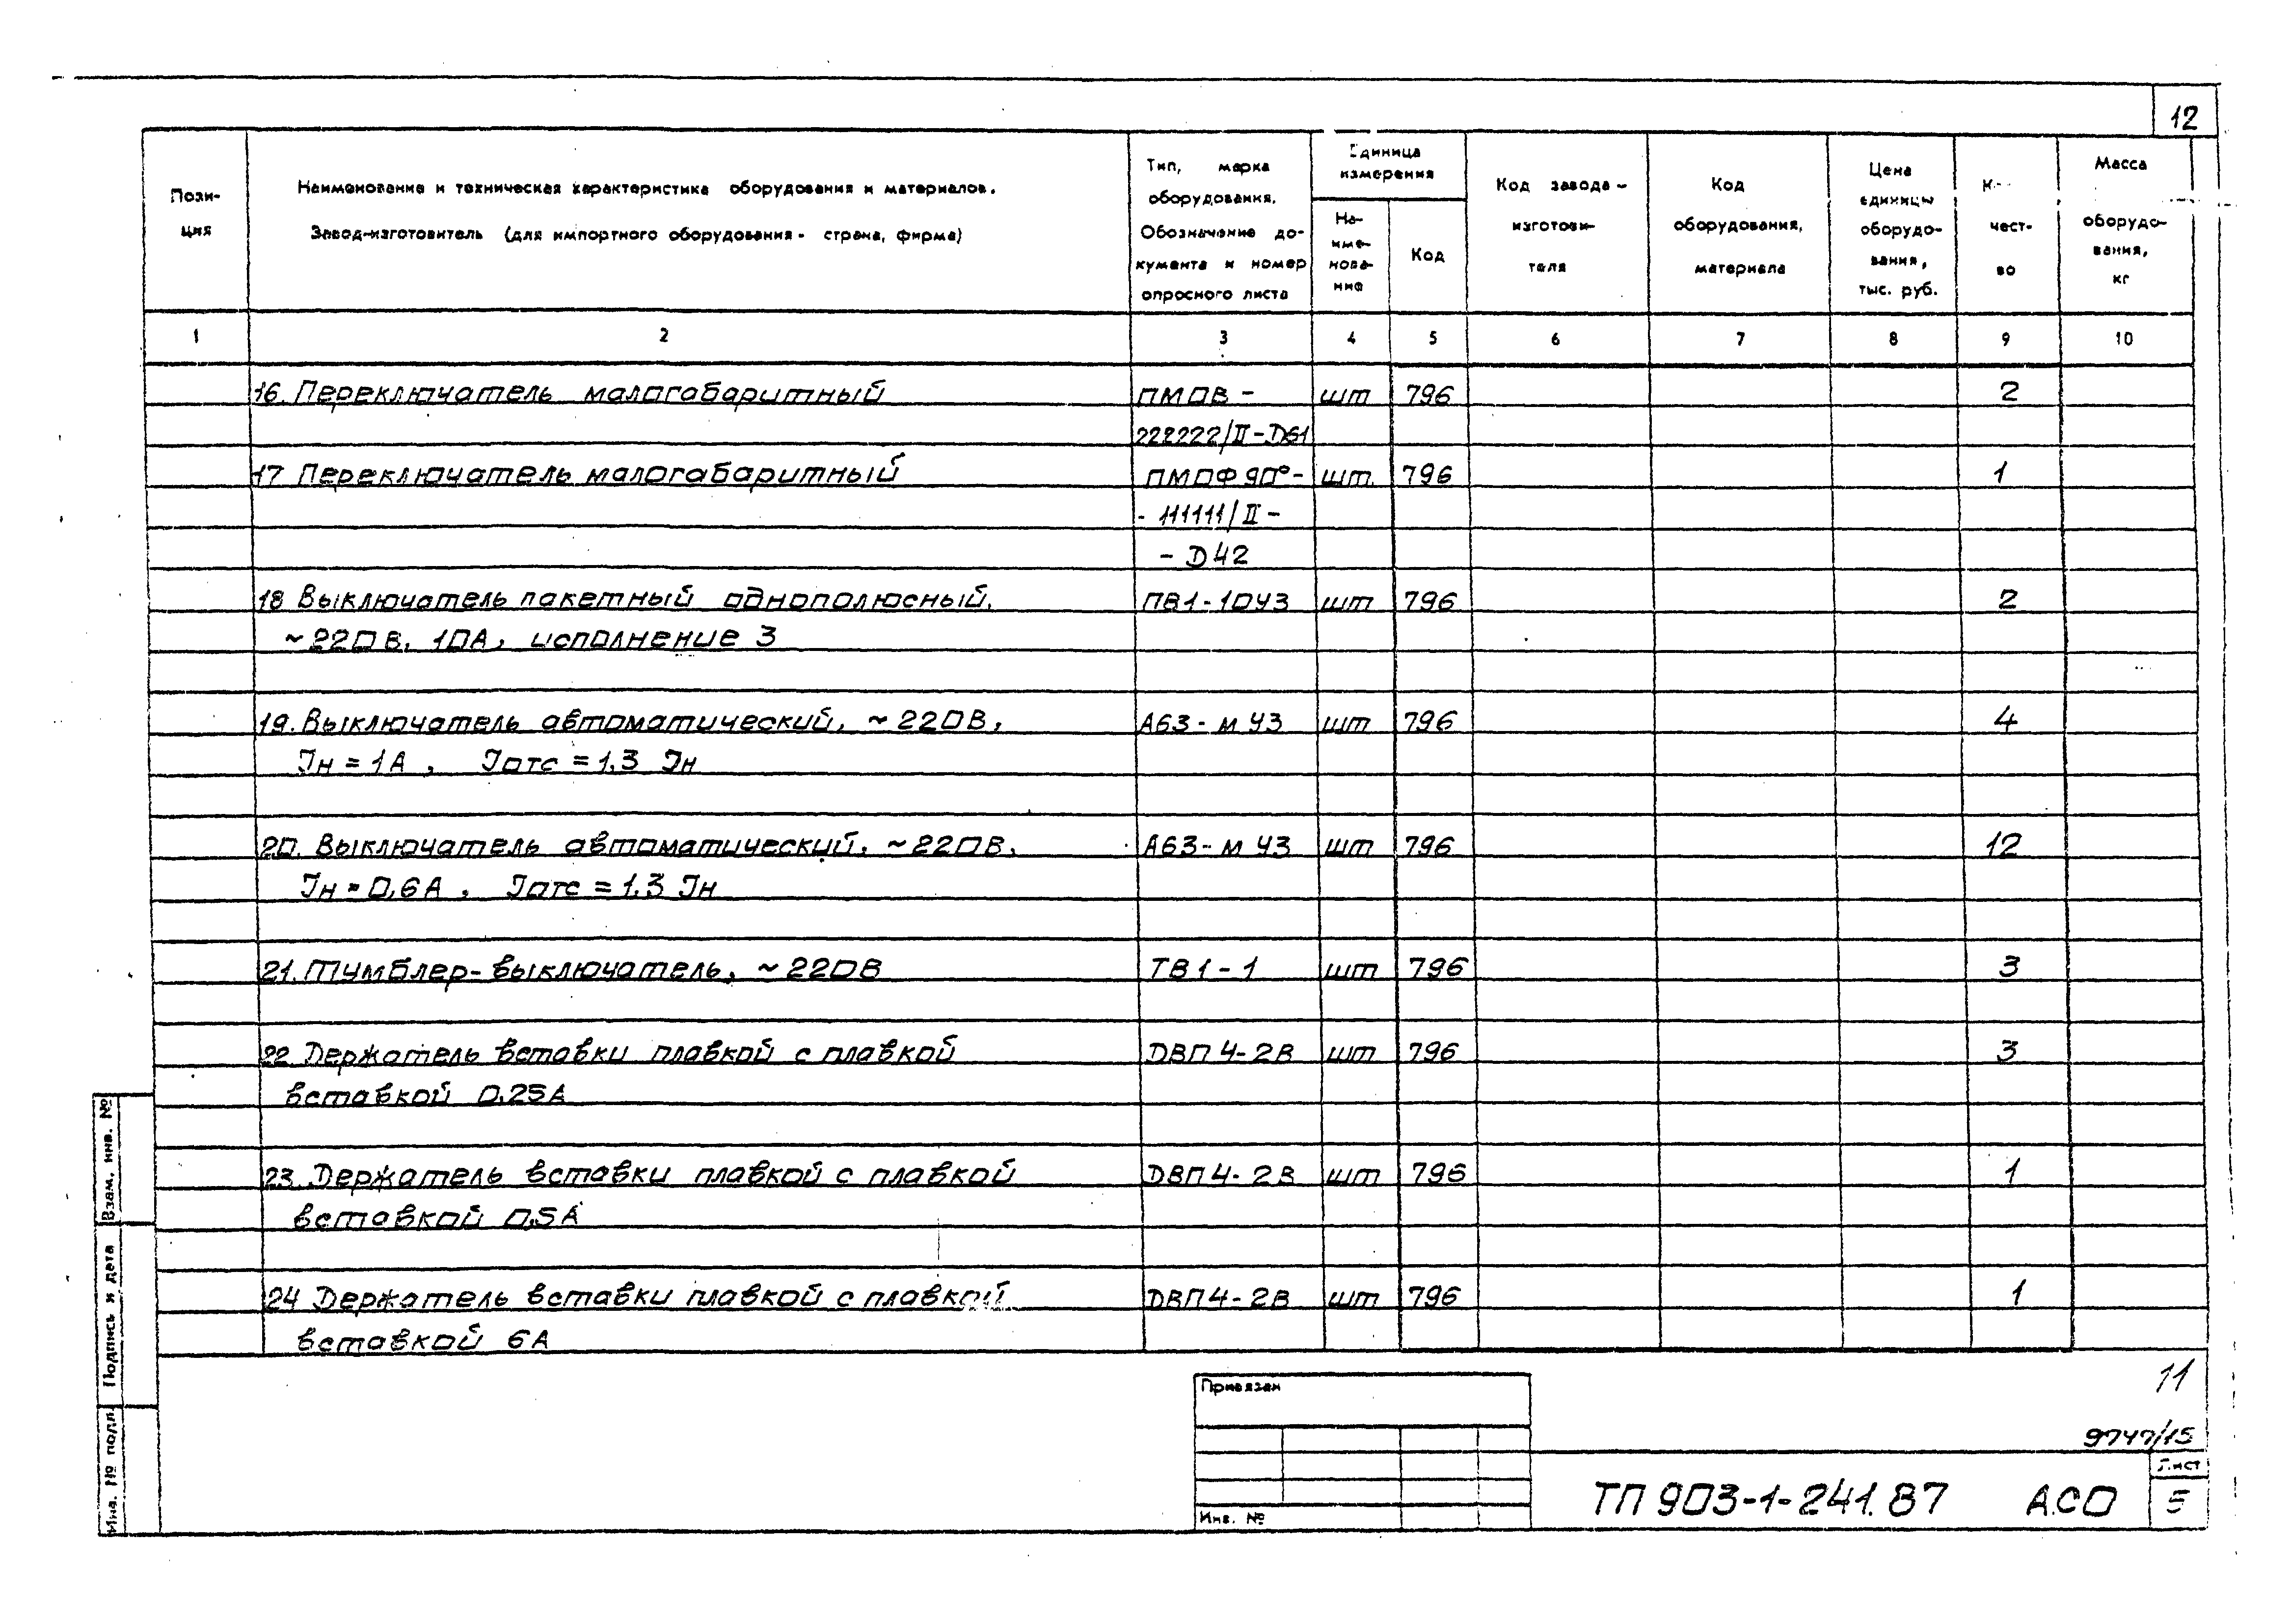 12
Пози-
ция
Наименование и техническая характеристика оборудования и материалов.
Завод-изготовитель (для импортного оборудования - страна, фирма)
Тип, марка
оборудования.
Обозначение до-
кумента и номер
опросного листа
Единица
измерения
На-
име-
нова-
ние
Код
Код завода-
изготови-
теля
Код
оборудования,
материала
Цена
единицы
оборудо-
вания,
тыс. руб.
чест-
во
Масса
оборудо-
вания,
кг
1 2 3 4 5 6 7 8 9 10
16. Переключатель малогабаритный ПМОВ - шт 796 2
222222/II-D61
17 Переключатель малогабаритный ПМОФ 90°- шт. 796 1
- 111111/II -
- D42
18 Выключатель пакетный однополюсный, ПВ1-10У3 шт 796 2
~220В, 10А, исполнение 3
19. Выключатель автоматический, ~220В, А63-м У3 шт 796 4
Iн = 1А, Iотс = 1,3 Iн
20. Выключатель автоматический, ~220В, А63-м У3 шт 796 12
Iн = 0,6А, Iотс = 1,3 Iн
21. Тумблер-выключатель, ~220В ТВ1-1 шт 796 3
22 Держатель вставки плавкой с плавкой ДВП4-2В шт 796 3
вставкой 0,25А
23. Держатель вставки плавкой с плавкой ДВП4-2В шт 796 1
вставкой 0,5А
24 Держатель вставки плавкой с плавкой ДВП4-2В шт 796 1
вставкой 6А
Взам. инв. №
Подпись и дата
Инв. № подл.
Привязан
Инв. №
11
9747/15
ТП 903-1-241.87 А.СО
Лист
5